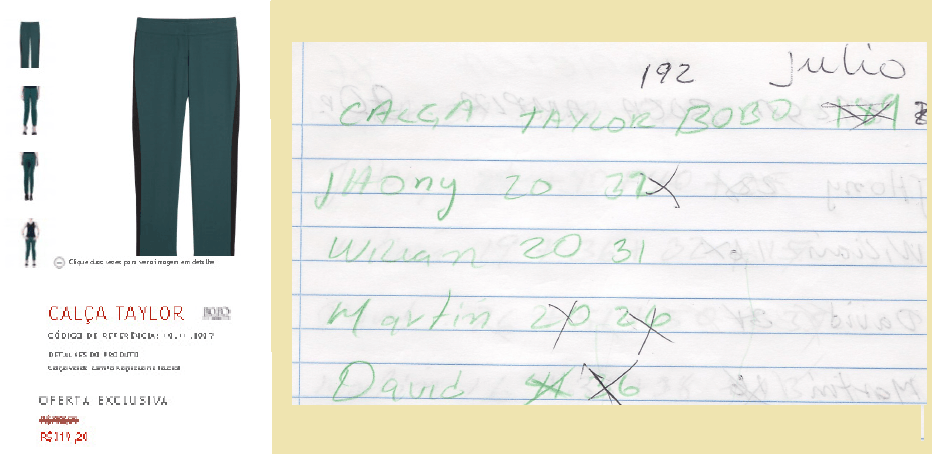 Clique duas vezes para ver a imagem em detalhe
CALÇA TAYLOR
CÓDIGO DE REFERÊNCIA:
DETALHES DO PRODUTO
OFERTA EXCLUSIVA
R$119,20
192 Julio
CALÇA TAYLOR BOBO
JHony 20 37
Wilian 20 31
Martin 20 20
David